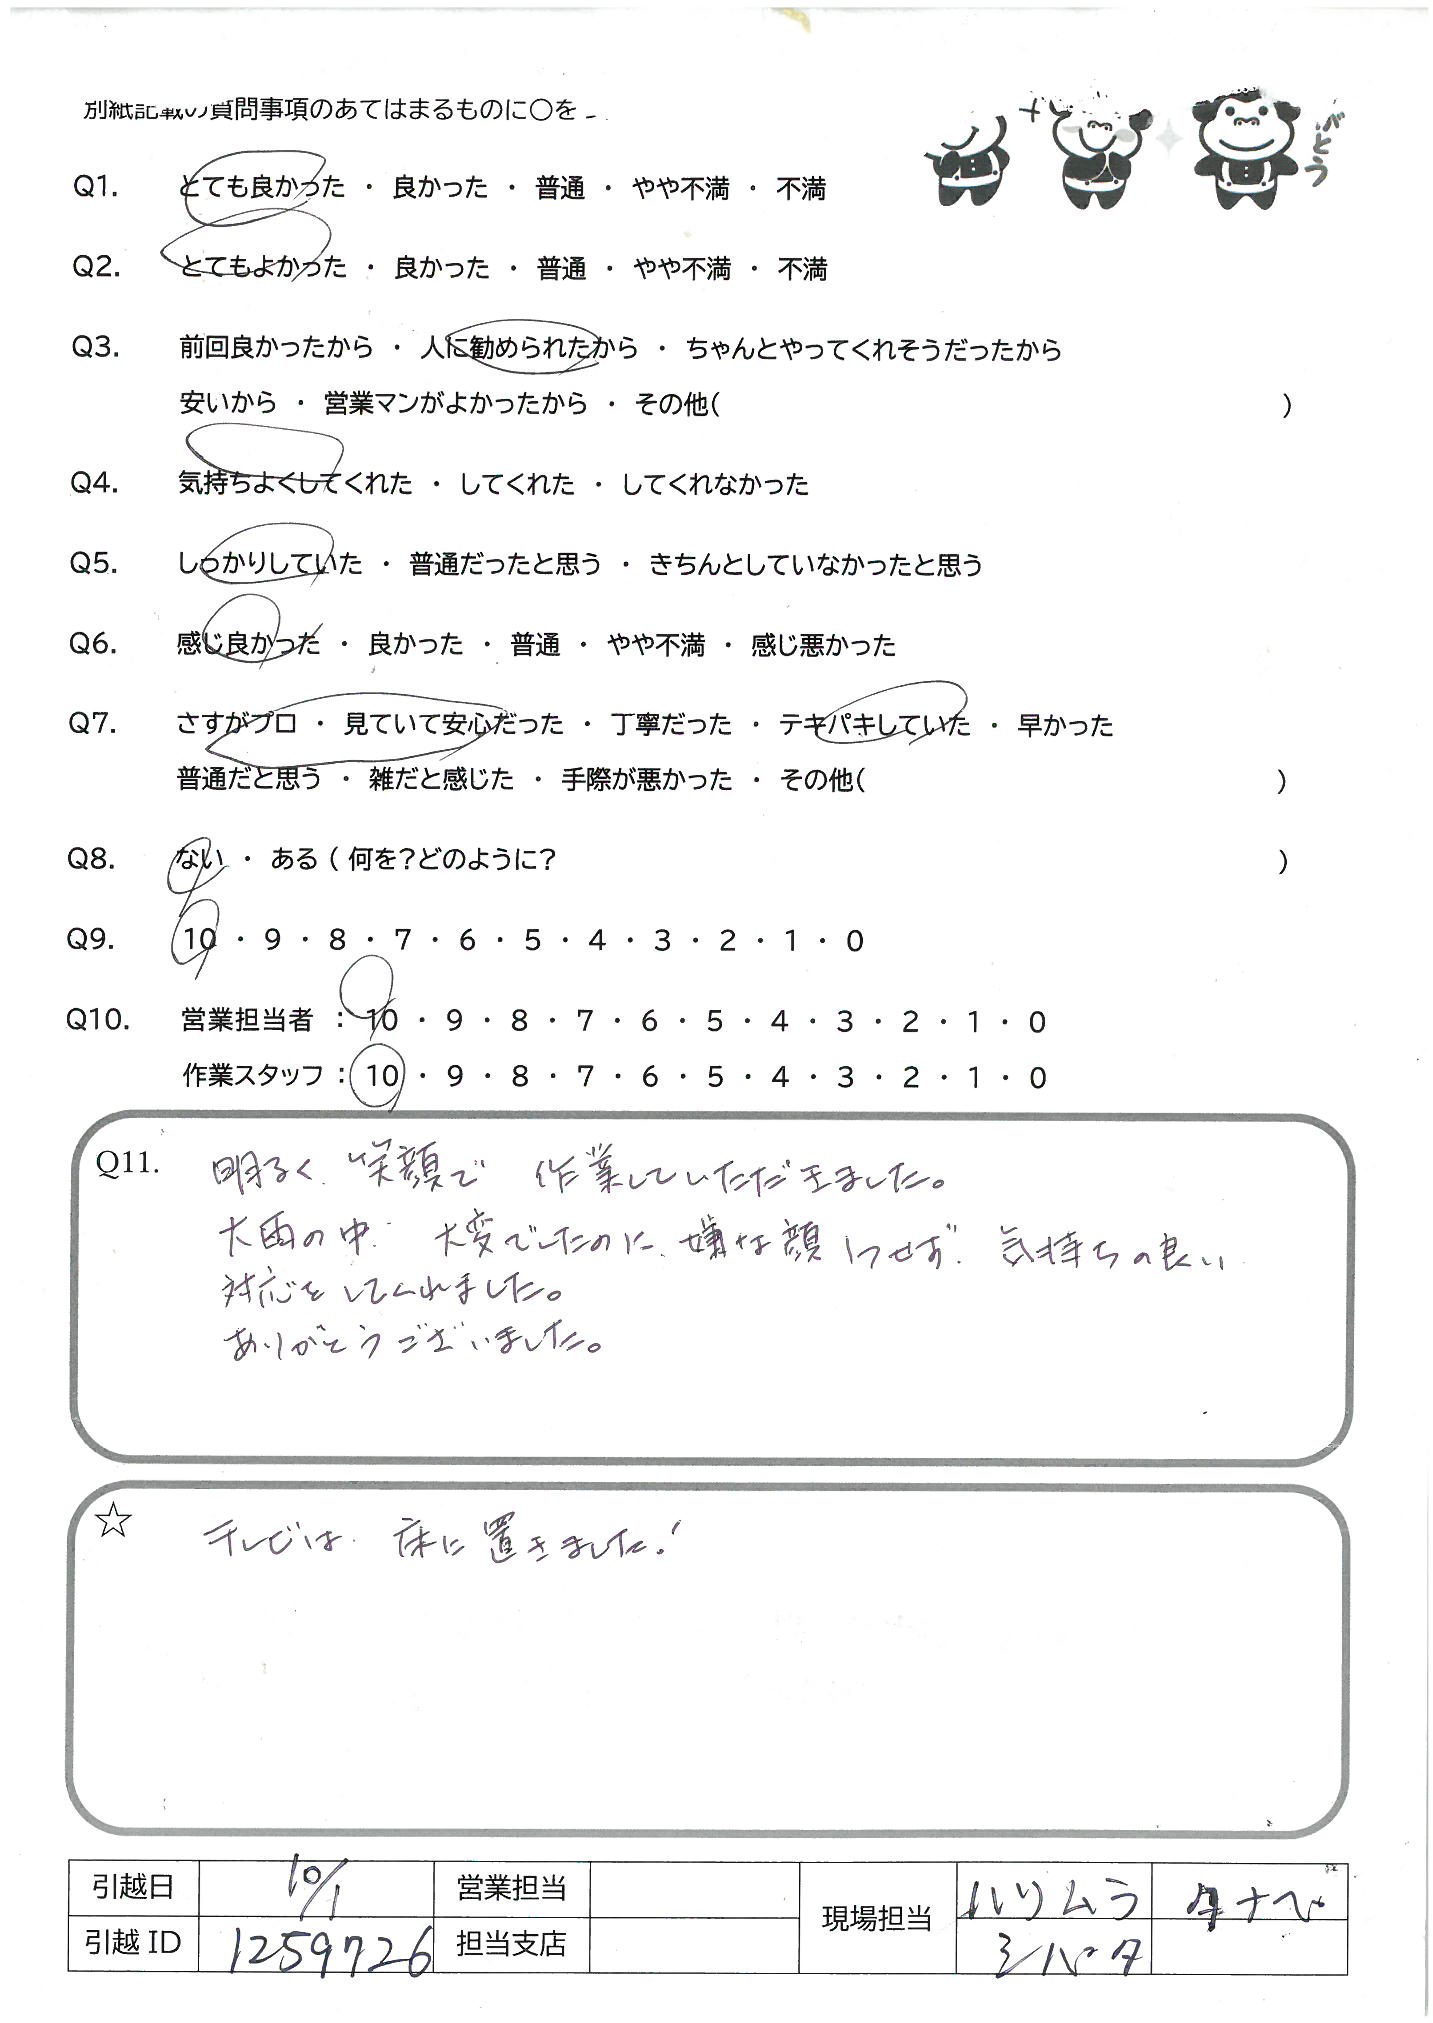 別紙記載の質問事項のあてはまるものに〇を
Q1. とても良かった ・ 良かった ・ 普通 ・ やや不満 ・ 不満
Q2. とてもよかった ・ 良かった ・ 普通 ・ やや不満 ・ 不満
Q3. 前回良かったから ・ 人に勧められたから ・ ちゃんとやってくれそうだったから
安いから ・ 営業マンがよかったから ・ その他( )
Q4. 気持ちよくしてくれた ・ してくれた ・ してくれなかった
Q5. しっかりしていた ・ 普通だったと思う ・ きちんとしていなかったと思う
Q6. 感じ良かった ・ 良かった ・ 普通 ・ やや不満 ・ 感じ悪かった
Q7. さすがプロ ・ 見ていて安心だった ・ 丁寧だった ・ テキパキしていた ・ 早かった
普通だと思う ・ 雑だと感じた ・ 手際が悪かった ・ その他( )
Q8. ない ・ ある ( 何を?どのように? )
Q9. 10 ・ 9 ・ 8 ・ 7 ・ 6 ・ 5 ・ 4 ・ 3 ・ 2 ・ 1 ・ 0
Q10. 営業担当者 : 10 ・ 9 ・ 8 ・ 7 ・ 6 ・ 5 ・ 4 ・ 3 ・ 2 ・ 1 ・ 0
作業スタッフ : 10 ・ 9 ・ 8 ・ 7 ・ 6 ・ 5 ・ 4 ・ 3 ・ 2 ・ 1 ・ 0
Q11. 明るく、笑顔で 作業していただきました。
大雨の中、大変でしたのに、嫌な顔1つせず、気持ちの良い
対応をしてくれました。
ありがとうございました。
☆ テレビは、床に置きました!
引越日 10/1 営業担当 現場担当 ハリムラ タナベ
引越ID 1259726 担当支店 シバタ